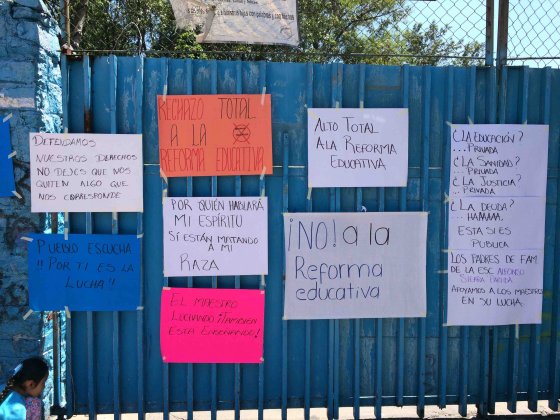 DEFENDAMOS
NUESTROS DERECHOS
NO DEJES QUE NOS
QUITEN ALGO QUE
NOS CORRESPONDE
RECHAZO TOTAL
A LA
REFORMA EDUCATIVA
ALTO TOTAL
A LA REFORMA
EDUCATIVA
¿LA EDUCACIÓN?
...PRIVADA
¿LA SANIDAD?
...PRIVADA
¿LA JUSTICIA?
...PRIVADA
¿LA DEUDA?
...HAMMM.
ESTA SI ES
PUBLICA
LOS PADRES DE FAM
DE LA ESC. ALFONSO
SIERRA
APOYAMOS A LOS MAESTROS
EN SU LUCHA.
PUEBLO ESCUCHA
!!POR TI ES LA
LUCHA!
POR QUIEN HABLARÁ
MI ESPÍRITU
SÍ ESTÁN MATANDO
A MI
RAZA
¡NO! a la
Reforma
educativa
EL MAESTRO
LUCHANDO ¡TAMBIEN
ESTA ENSEÑANDO!